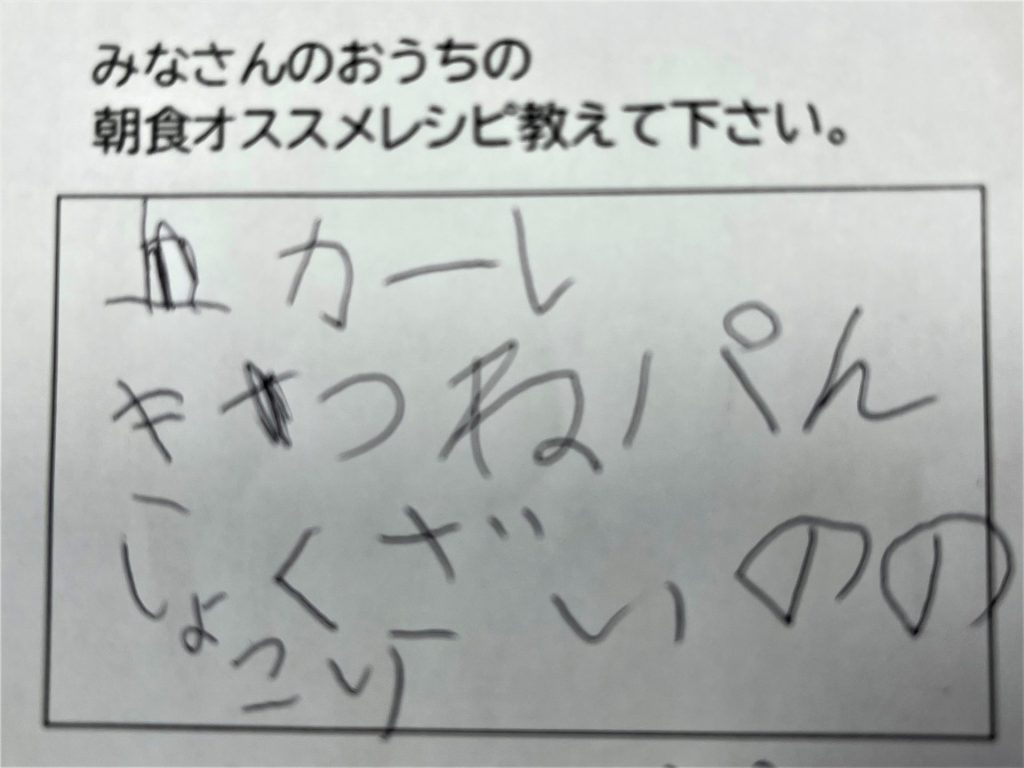 みなさんのおうちの
朝食オススメレシピ教えて下さい。
カーレ
きつねパん
しょくざいのの
こり